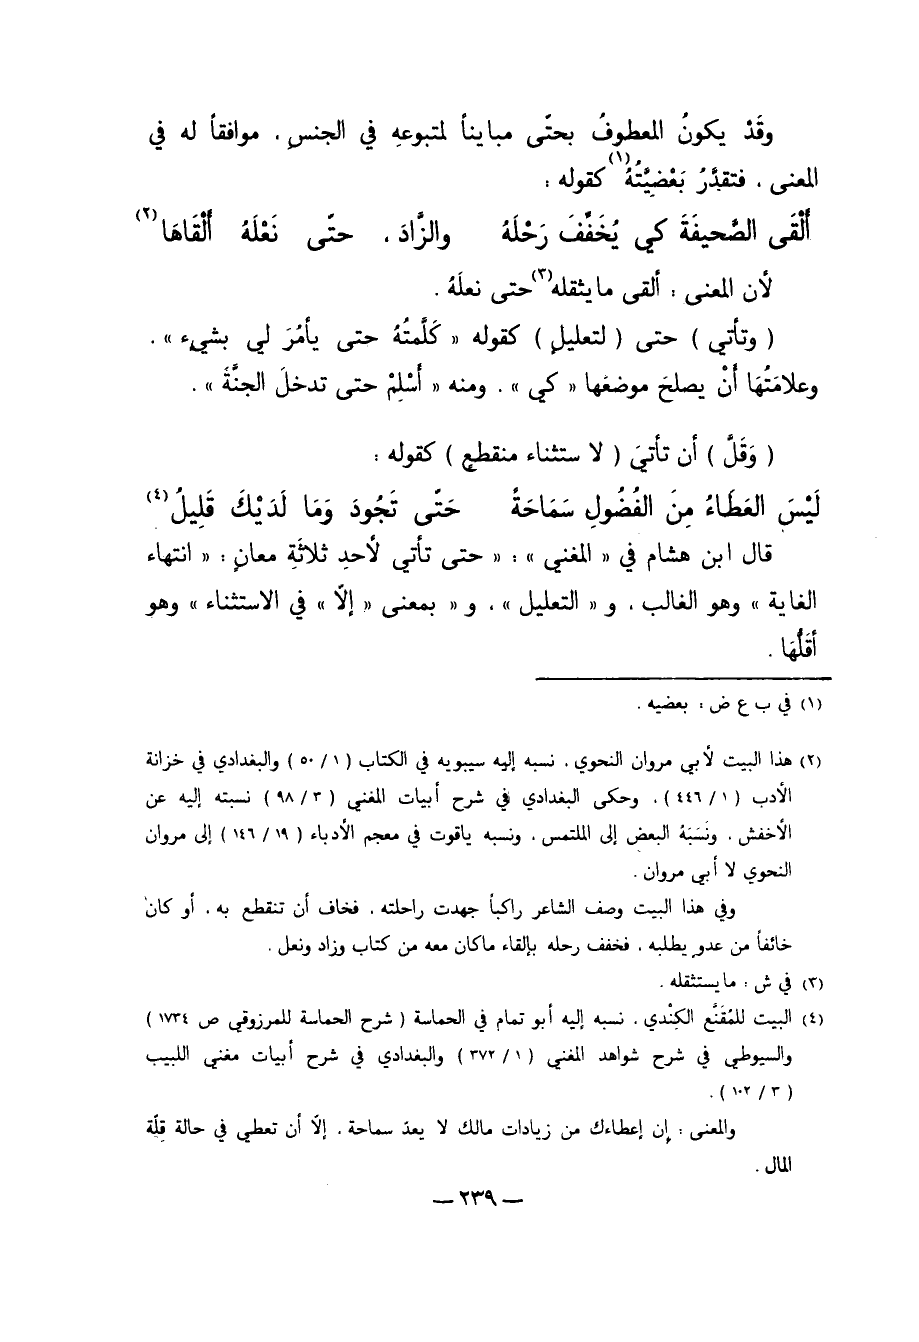 وقَدْ يكونُ المعطوفُ بحتّى مبايناً لمتبوعهِ في الجنسِ ، موافقاً له في
المعنى ، فتقدَّرُ بَعْضيَّتُهُ(١) كقوله :
أَلْقَى الصَّحيفَةَ كي يُخَفِّفَ رَحْلَهُ والزَّادَ ، حتّى نَعْلَهُ أَلْقَاهَا(٢)
لأن المعنى : ألقى مايثقله(٣) حتى نعلَهُ .
( وتأتي ) حتى ( لتعليلٍ ) كقوله « كَلَّمتُهُ حتى يأمُرَ لي بشيءٍ » .
وعلامَتُهَا أَنْ يصلحَ موضعَها « كي » . ومنه « أَسْلِمْ حتى تدخلَ الجنَّةَ » .
( وَقَلَّ ) أن تأتيَ ( لاستثناء منقطعٍ ) كقوله :
لَيْسَ العَطَاءُ مِنَ الفُضُولِ سَمَاحَةً حَتَّى تَجُودَ وَمَا لَدَيْكَ قَلِيلُ(٤)
قال ابن هشام في « المغني » : « حتى تأتي لأحدِ ثلاثَةِ معانٍ : « انتهاء
الغاية » وهو الغالب ، و « التعليل » ، و « بمعنى « إلّا » في الاستثناء » وهو
أَقَلُّهَا .
(١) في ب ع ض : بعضيه .
(٢) هذا البيت لأبي مروان النحوي ، نسبه إليه سيبويه في الكتاب ( ١ / ٥٠ ) والبغدادي في خزانة
الأدب ( ١ / ٤٤٦ ) ، وحكى البغدادي في شرح أبيات المغني ( ٣ / ٩٨ ) نسبته إليه عن
الأخفش . ونَسَبَهُ البعض إلى الملتمس ، ونسبه ياقوت في معجم الأدباء ( ١٩ / ١٤٦ ) إلى مروان
النحوي لا أبي مروان .
وفي هذا البيت وصف الشاعر راكباً جهدت راحلته ، فخاف أن تنقطع به ، أو كان
خائفاً من عدوٍ يطلبه ، فخفف رحله بإلقاء ماكان معه من كتاب وزاد ونعل .
(٣) في ش : مايستثقله .
(٤) البيت للمُقَنَّع الكِنْدي ، نسبه إليه أبو تمام في الحماسة ( شرح الحماسة للمرزوقي ص ١٧٣٤ )
والسيوطي في شرح شواهد المغني ( ١ / ٣٧٢ ) والبغدادي في شرح أبيات مغني اللبيب
( ٣ / ١٠٢ ) .
والمعنى : إن إعطاءك من زيادات مالك لا يعدّ سماحة ، إلّا أن تعطي في حالة قلّة
المال .
— ٢٣٩ —